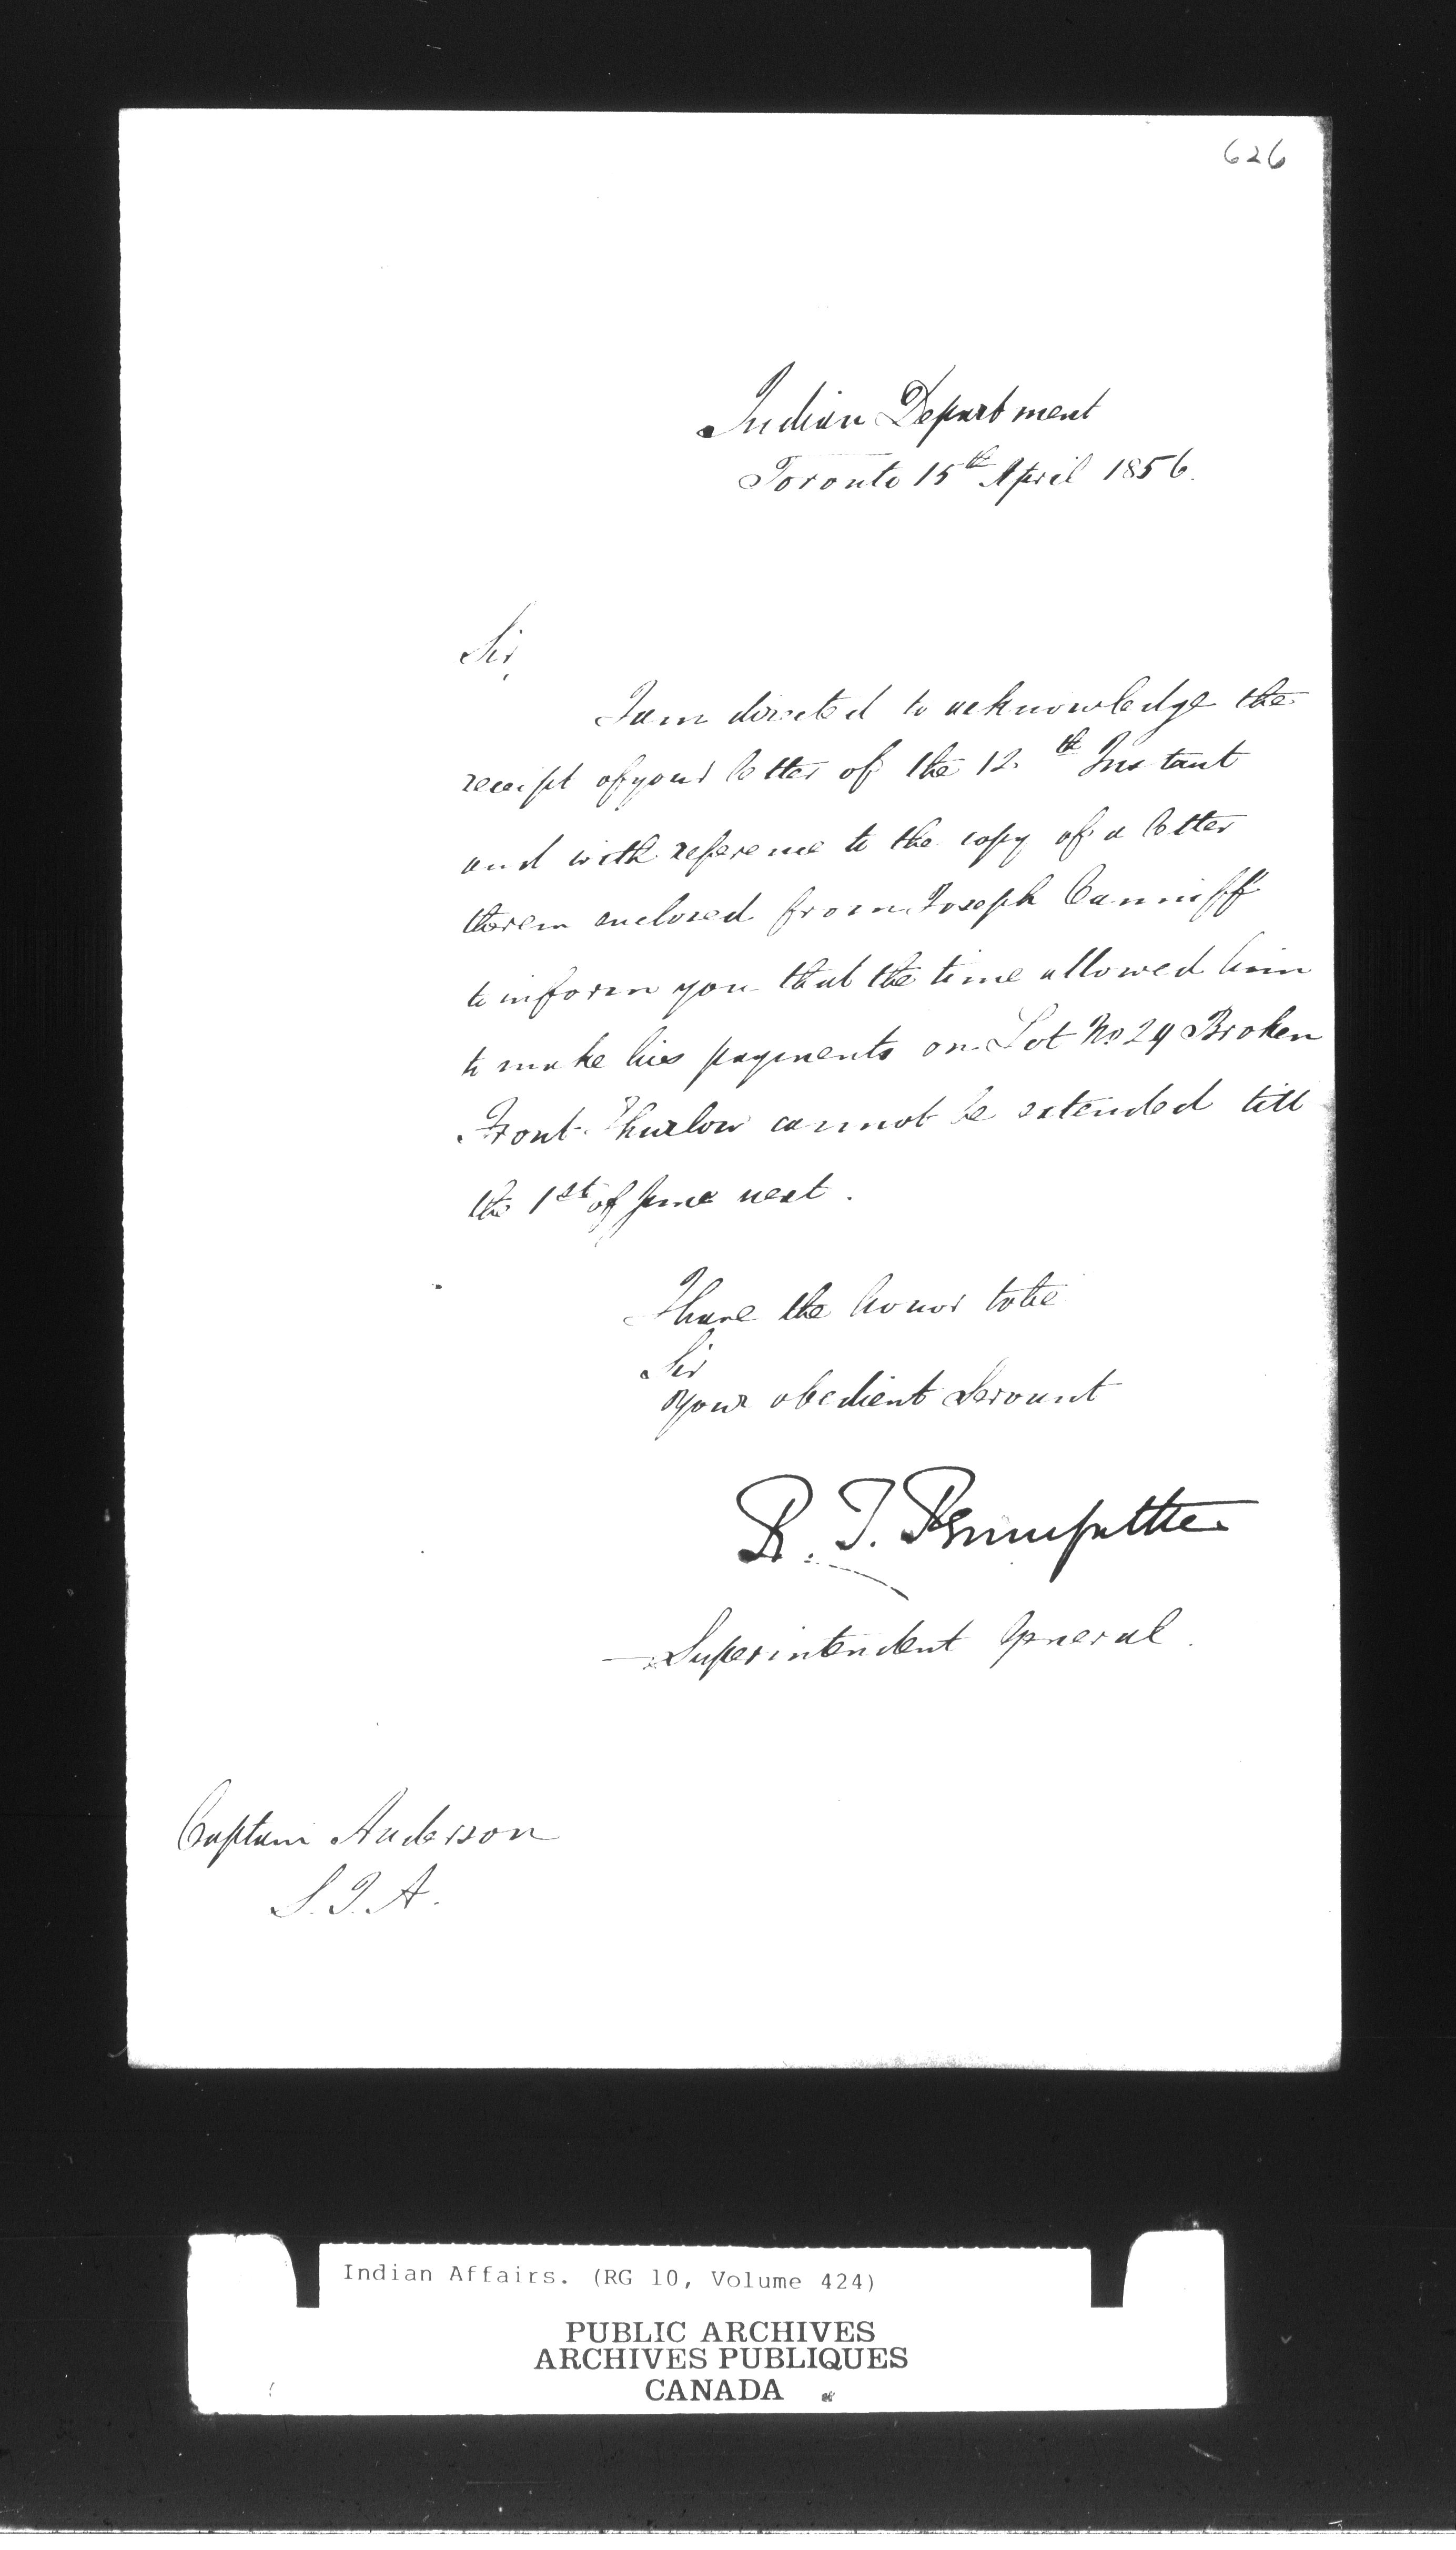 626
Indian Department
Toronto 15th April 1856.
Sir,
I am directed to acknowledge the
receipt of your letter of the 12th Instant
and with reference to the copy of a letter
therein enclosed from Joseph Canniff
to inform you that the time allowed him
to make his payments on Lot No 29 Broken
Front Thurlow cannot be extended till
the 1st of June next.
I have the honor to be
Sir
Your obedient Servant
R. T. Pennefather
Superintendent General.
Captain Anderson
S. I. A.
Indian Affairs. (RG 10, Volume 424)
PUBLIC ARCHIVES
ARCHIVES PUBLIQUES
CANADA